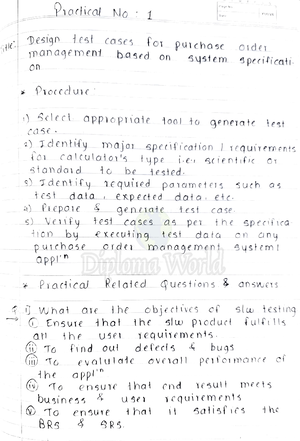 Practical No : 1
Design test cases for purchase order
management based on system specificati
on
* Procedure
1) Select appropriate tool to generate test
case.
2) Identify major specification / requirements
for calculator's type i.e. scientific or
standard to be tested.
3) Identify required parameters such as
test data, expected data. etc.
4) Prepare & generate test case.
5) Verify test cases as per the specifica
tion by executing test data on any
purchase order management system
appl'n
Diploma World
* Practical Related Questions & answers
1) What are the objectives of s/w testing
i) Ensure that the s/w product fulfills
all the user requirements.
ii) To find out defects & bugs
iii) To evalulate overall performance of
the appl'n
iv) To ensure that end result meets
business & user requirements
v) To ensure that it satisfies the
BRS & SRS.